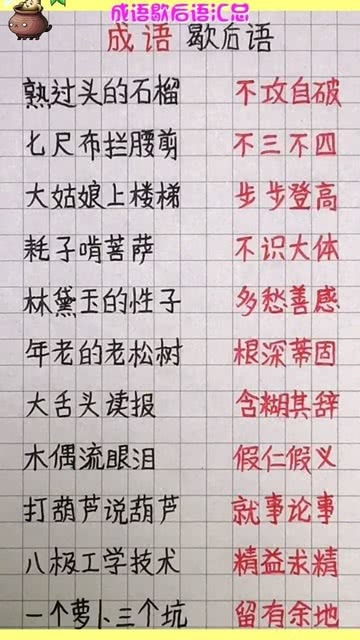 成语歇后语汇总
成语 歇后语
熟过头的石榴 不攻自破
七尺布拦腰剪 不三不四
大姑娘上楼梯 步步登高
耗子啃菩萨 不识大体
林黛玉的性子 多愁善感
年老的老松树 根深蒂固
大舌头读报 含糊其辞
木偶流眼泪 假仁假义
打葫芦说葫芦 就事论事
八极工学技术 精益求精
一个萝卜三个坑 留有余地